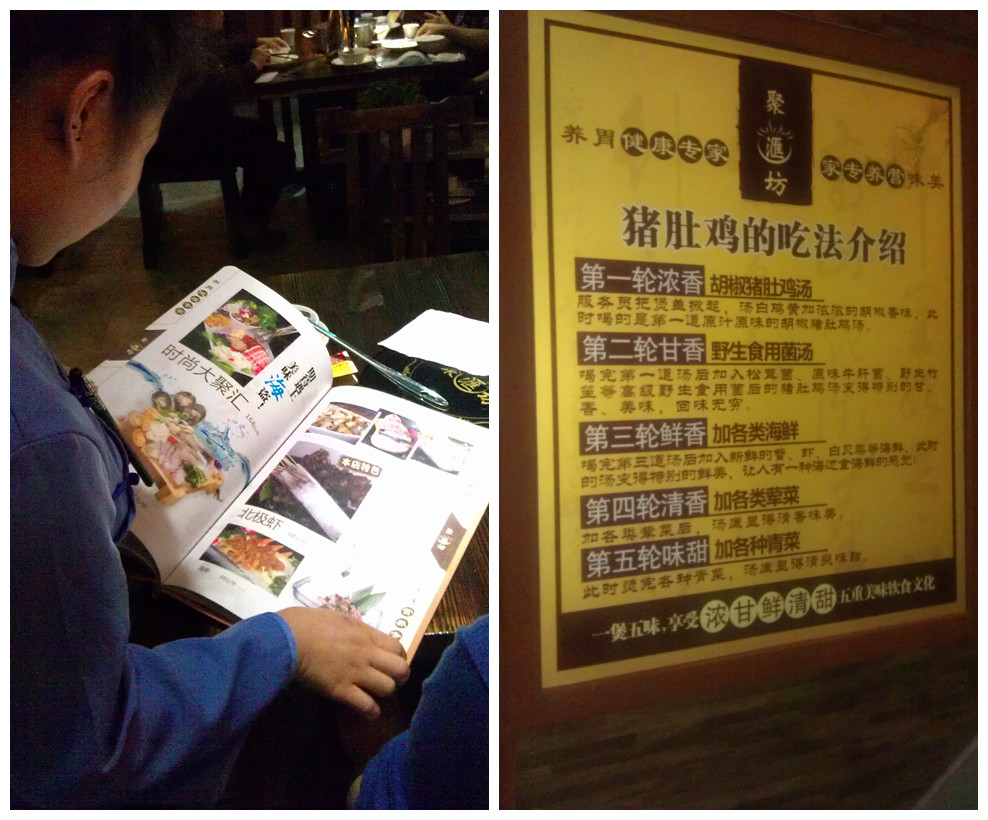 时尚大聚汇
本店特色
北极虾
聚
滙
坊
养胃健康专家
家专养营味美
猪肚鸡的吃法介绍
第一轮浓香 胡椒猪肚鸡汤
服务员把煲盖掀起，汤白鸡黄加浓浓的胡椒香味，此
时喝的是第一道原汁原味的胡椒猪肚鸡汤。
第二轮甘香 野生食用菌汤
喝完第一道汤后加入松茸菌、原味牛肝菌、野生竹
笙等高级野生食用菌后的猪肚鸡汤变得特别的甘、
香、美味，回味无穷。
第三轮鲜香 加各类海鲜
喝完第三道汤后加入新鲜的蟹、虾、白贝类等海鲜，此时
的汤变得特别的鲜美，让人有一种海边食海鲜的感觉！
第四轮清香 加各类荤菜
加各类荤菜后，汤底显得清香味美。
第五轮味甜 加各种青菜
此时烫完各种青菜，汤底显得清爽味甜。
一煲五味，享受浓甘鲜清甜五重美味饮食文化